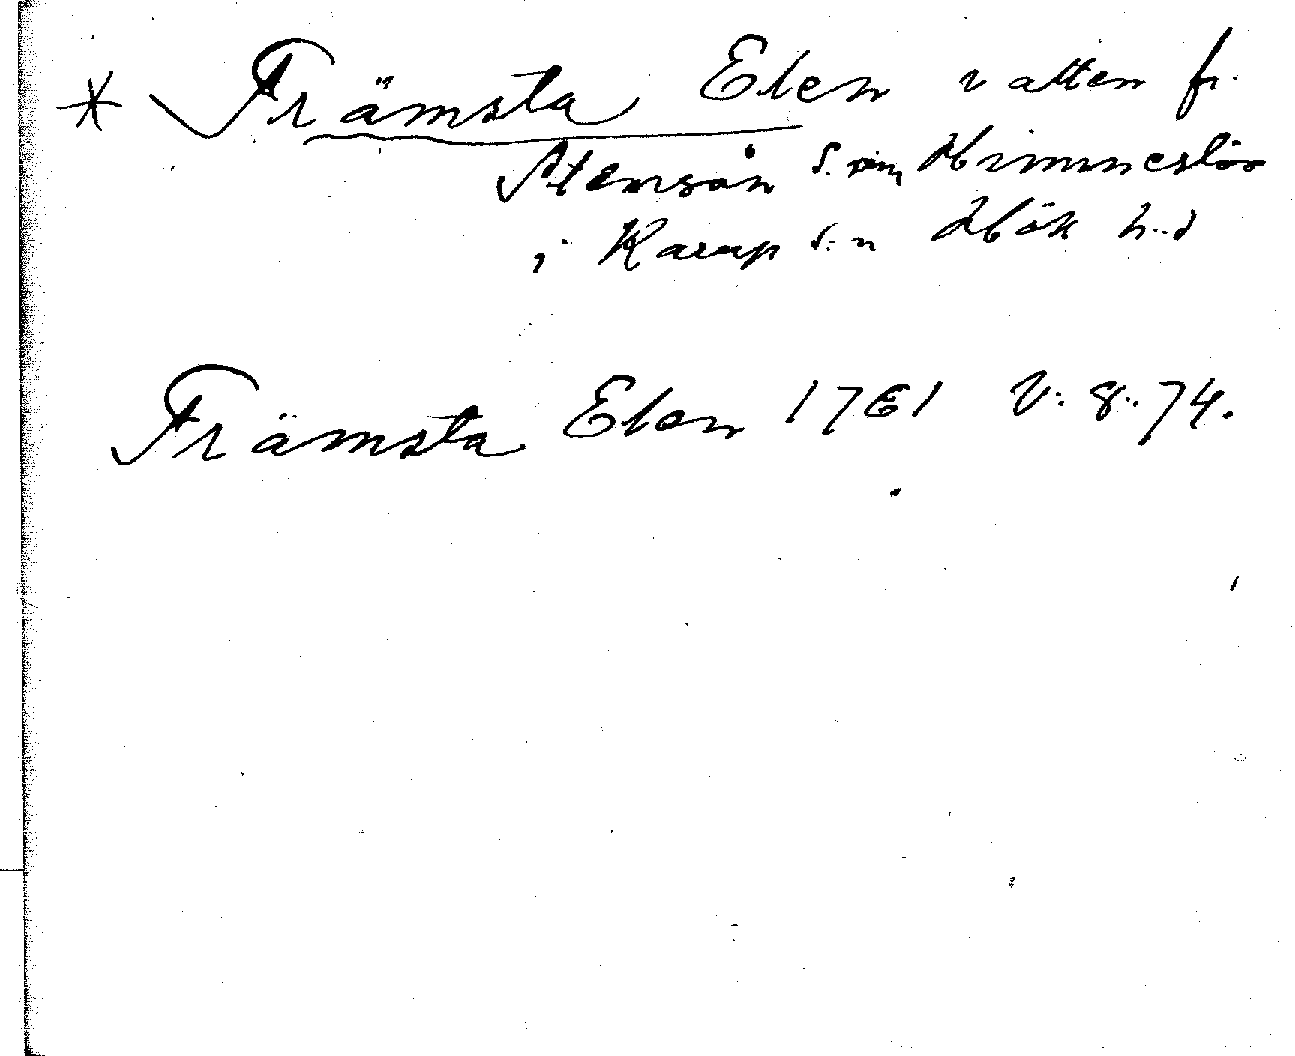 * Främsta Elen vatten fr.
Stensån S. om Himmeslöv
i Karup s:n Hök h.d
Främsta Elen 1761 V:8:74.